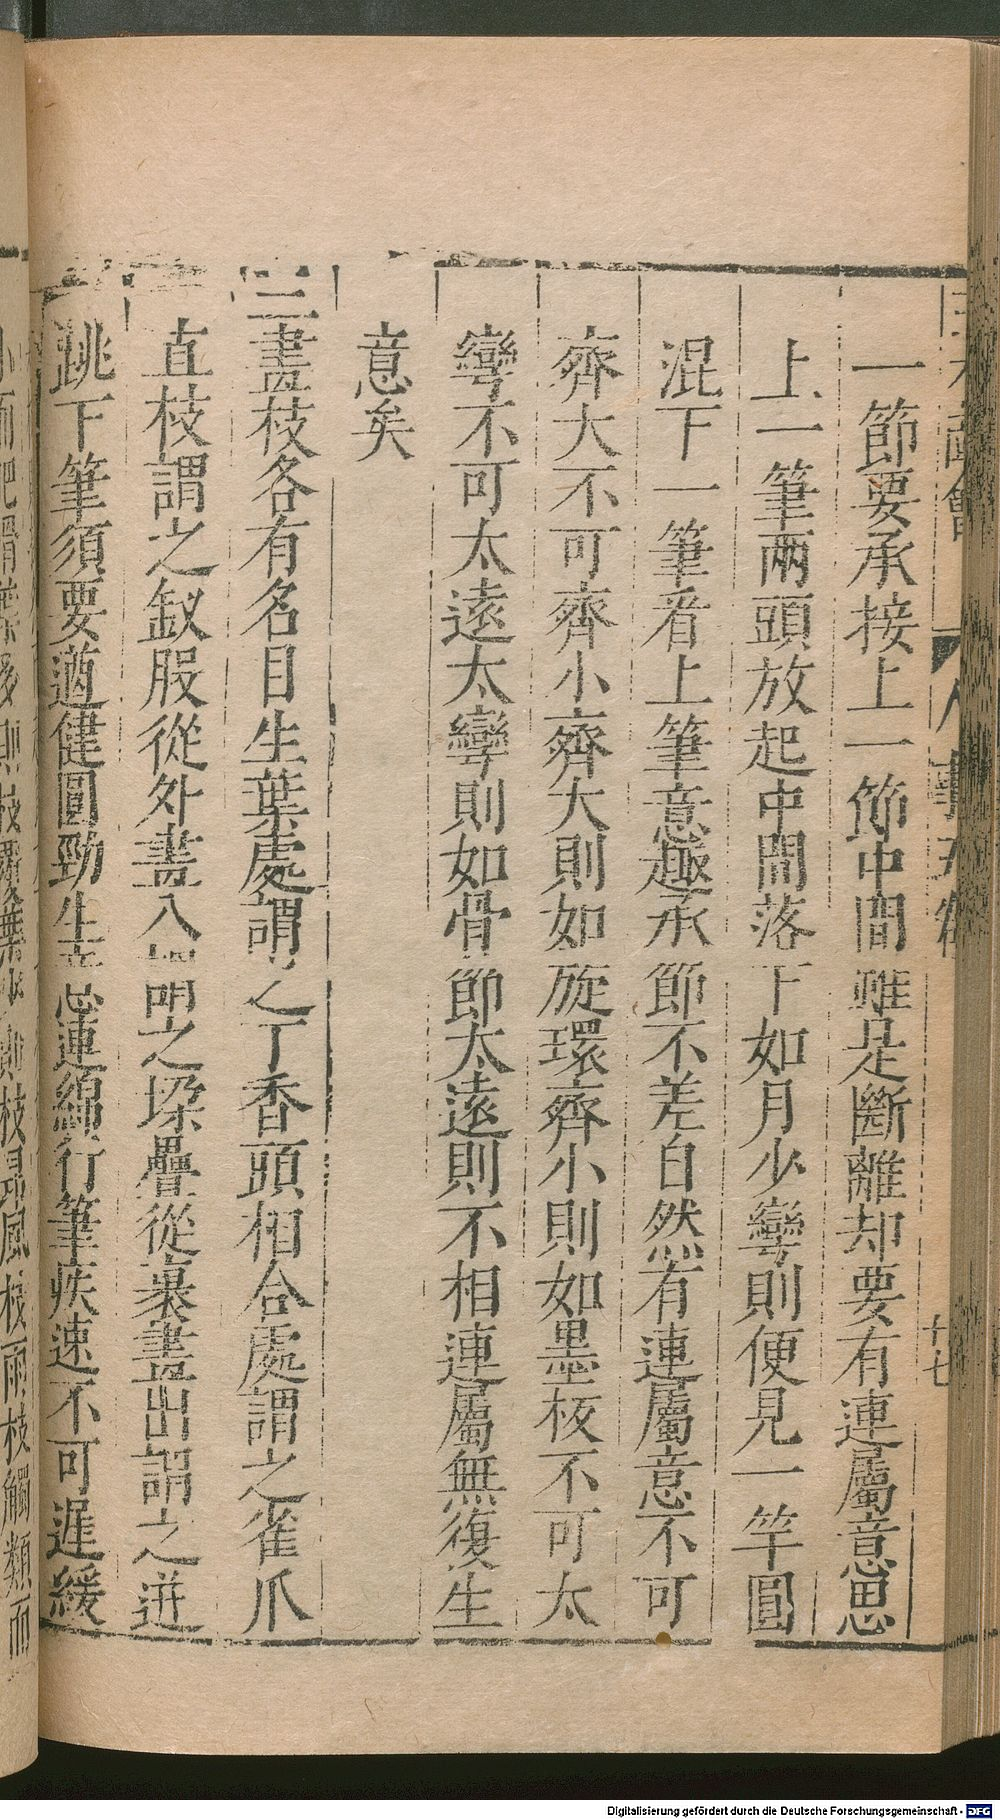 一節要承接上一節中間雖是斷離却要有連屬意思
上一筆兩頭放起中間落下如月少彎則便見一竿圓
混下一筆看上筆意趣承節不差自然有連屬意不可
齊大不可齊小齊大則如旋環齊小則如墨板不可太
彎不可太遠太彎則如骨節太遠則不相連屬無復生
意矣
三畫枝各有名目生葉處謂之丁香頭相合處謂之雀爪
直枝謂之釵股從外畫入謂之垜疊從裏畫出謂之迸
跳下筆須要遒健圓勁生意連綿行筆疾速不可遲緩
十七
Digitalisierung gefördert durch die Deutsche Forschungsgemeinschaft - DFG